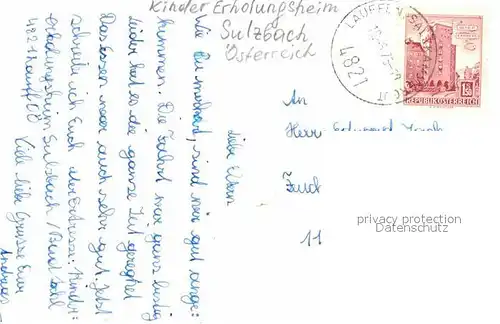 Kinder Erholungsheim
Sulzbach
Österreich
Liebe Eltern
Wie Ihr merkt, sind wir gut ange=
kommen. Die Fahrt war ganz lustig
leider hat es die ganze Zeit geregnet
Das Essen war auch sehr gut. Jetzt
schreibe ich Euch die Adresse: Kinder=
erholungsheim Sulzbach / Bad Ischl
4821 Lauffen OÖ
Viele liebe Grüsse Euer
Andreas
LAUFFEN
4821
1.50
REPUBLIK ÖSTERREICH
An
Herr
11
privacy protection
Datenschutz